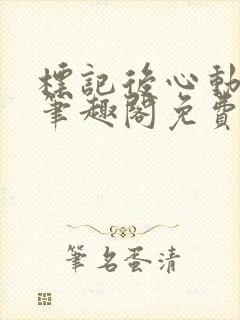 標記後心動
筆趣閣免費
筆名蛋清